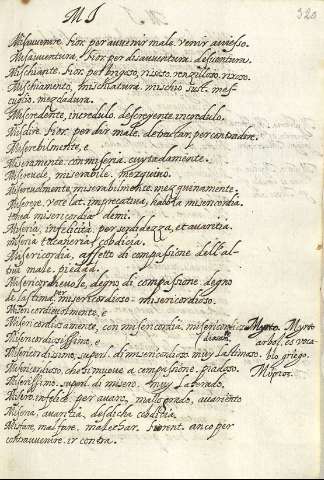 M I
320
Misavvenire. Fior. per avvenir male. venir aviesso.
Misavventura, Fior. per disavventura. desventura.
Mischiante. Fior. per brigoso, rissoso. renzilloso, rixoso.
Mischiamento, mischiatura. mischio sust. mes-
cuglio, mezcladura.
Miscredente, incredulo. descreyente incredulo.
Misdire. Fior. per dir male. detractar, per contradire.
Miserabilmente, e
Miseramente. con miseria. cuytadamente.
Miserevole, miserabile. mezquino.
Miserevolmente, miserabilmente. mezquenamente.
Miserere, voce lat. imprecativa, habbia misericordia.
misericordia demi.
Miseria, infelicità. per sordidezza, et avaritia.
miseria tacaneria cobdicia.
Misericordia, affetto di compassione dell'al-
trui male. piedad.
Misericordievole, degno di compassione degno
di lastima. per misericordioso. misericordioso.
Misericordievolmente, e
Misericordiosamente, con misericordia, misericordiosa
Misericordiosissimo, e
Misericordissimo, superl. di misericordioso. muy lastimoso.
Misericordioso, che si muove a compassione. piadoso.
Miserissimo. superl. di misero. muy
Misero. infelice. per avaro. malogrado, avariento
Misero, avaritia, desdicha cobditia
Misfare, mal fare. malechar. Fiorent. anco per
contravvenire. ir contra.
Myrto. Myrto
arbol, es voca-
blo griego.
Μύρτος.